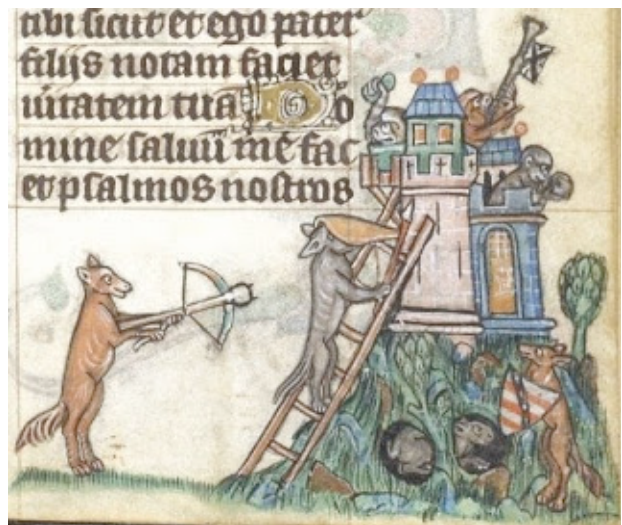 tibi sicut et ego pater
filijs notam faciet
ũitatem tuā Do
mine saluū me fac
et psalmos nostros